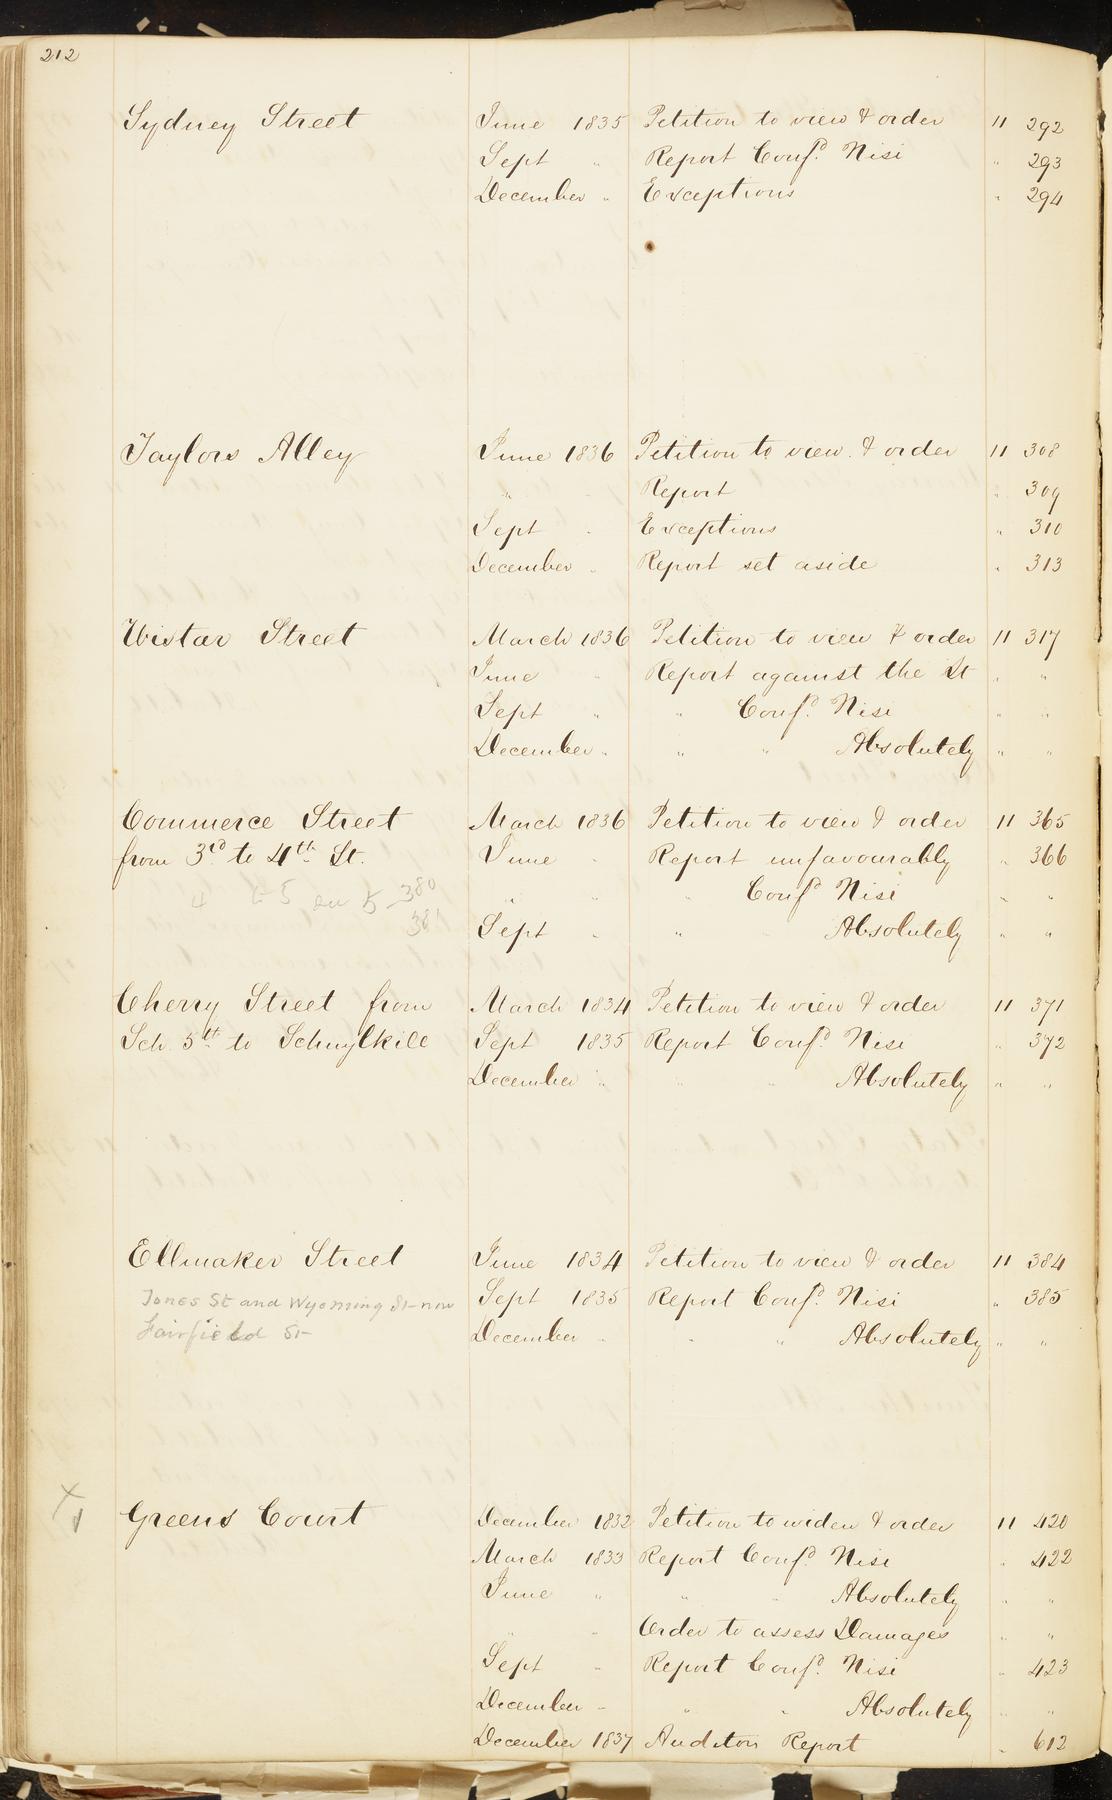 212
Sydney Street June 1835 Petition to view & order 11 292
Sept " Report Confd. Nisi " 293
December " Exceptions " 294
Taylors Alley June 1836 Petition to view & order 11 308
" Report " 309
Sept " Exceptions " 310
December " Report set aside " 313
Wistar Street March 1836 Petition to view & order 11 317
June " Report against the St " "
Sept " " Confd. Nisi " "
December " " " Absolutely " "
Commerce Street March 1836 Petition to view & order 11 365
from 3rd to 4th St. June " Report unfavourably " 366
" " " Confd Nisi " "
4 5 5 380
381
Sept " " " Absolutely " "
Cherry Street from March 1834 Petition to view & order 11 371
Sch. 5th to Schuylkill Sept 1835 Report Confd. Nisi " 372
December " " " Absolutely " "
Ellmaker Street June 1834 Petition to view & order 11 384
Jones St and Wyoming St now Sept 1835 Report Confd. Nisi " 385
Fairfield St December " " " Absolutely " "
Greens Court December 1832 Petition to widen & order 11 420
March 1833 Report Confd. Nisi " 422
June " " " Absolutely " "
" " Order to assess Damages " "
Sept " Report Confd. Nisi " 423
December " " " Absolutely " "
December 1837 Auditors Report " 612